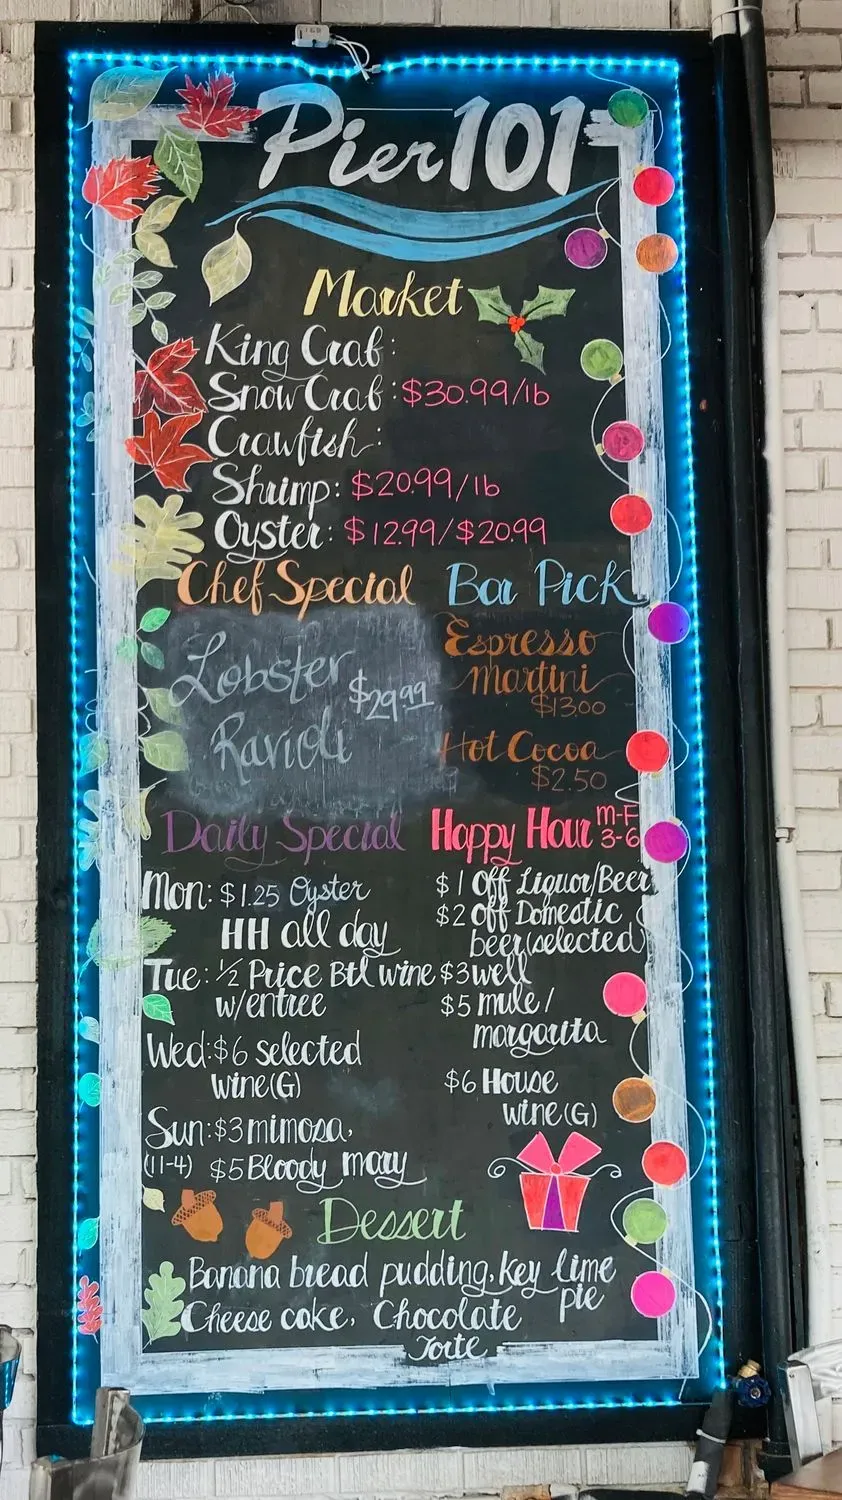 Pier 101
Market
King Crab:
Snow Crab: $30.99/lb
Crawfish:
Shrimp: $20.99/lb
Oyster: $12.99/$20.99
Chef Special
Lobster
$29.99
Ravioli
Bar Pick
Espresso
Martini
$13.00
Hot Cocoa
$2.50
Daily Special
Mon: $1.25 Oyster
HH all day
Tue: 1/2 Price Btl wine
w/entree
Wed: $6 selected
wine (G)
Sun: $3 mimosa,
(11-4) $5 Bloody mary
Happy Hour M-F
3-6
$1 Off Liquor/Beer
$2 Off Domestic
beer (selected)
$3 well
$5 mule/
margarita
$6 House
wine (G)
Dessert
Banana bread pudding, key lime
pie
Cheese cake, Chocolate
Torte